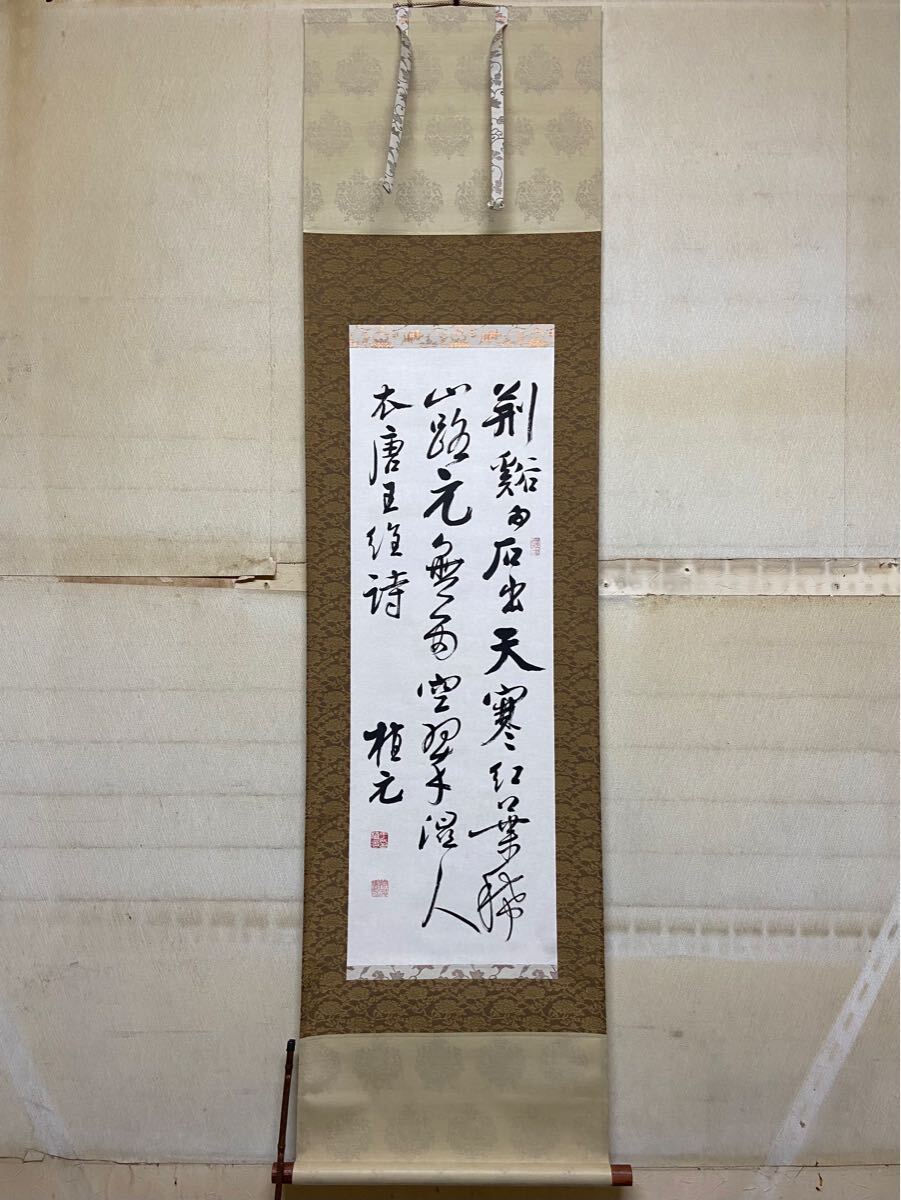 荊谿白石出天寒紅葉稀
山路元無雨空翠湿人
衣唐王維詩 植元